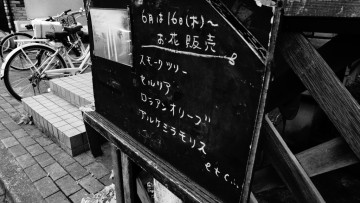 6月は16日(木)～
お花販売
スモークツリー
セルリア
ロシアンオリーブ
アルケミラモリス
etc...